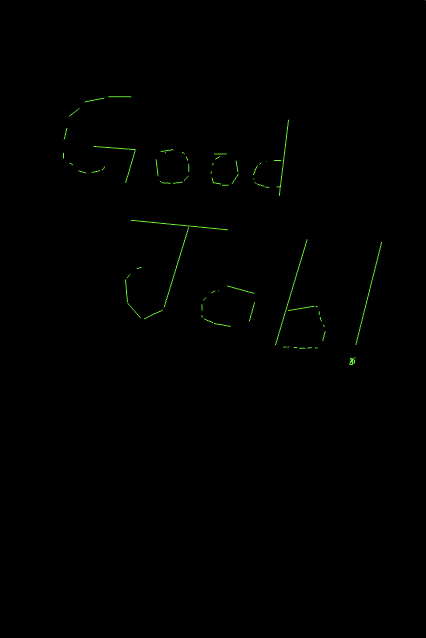 Good
Job!